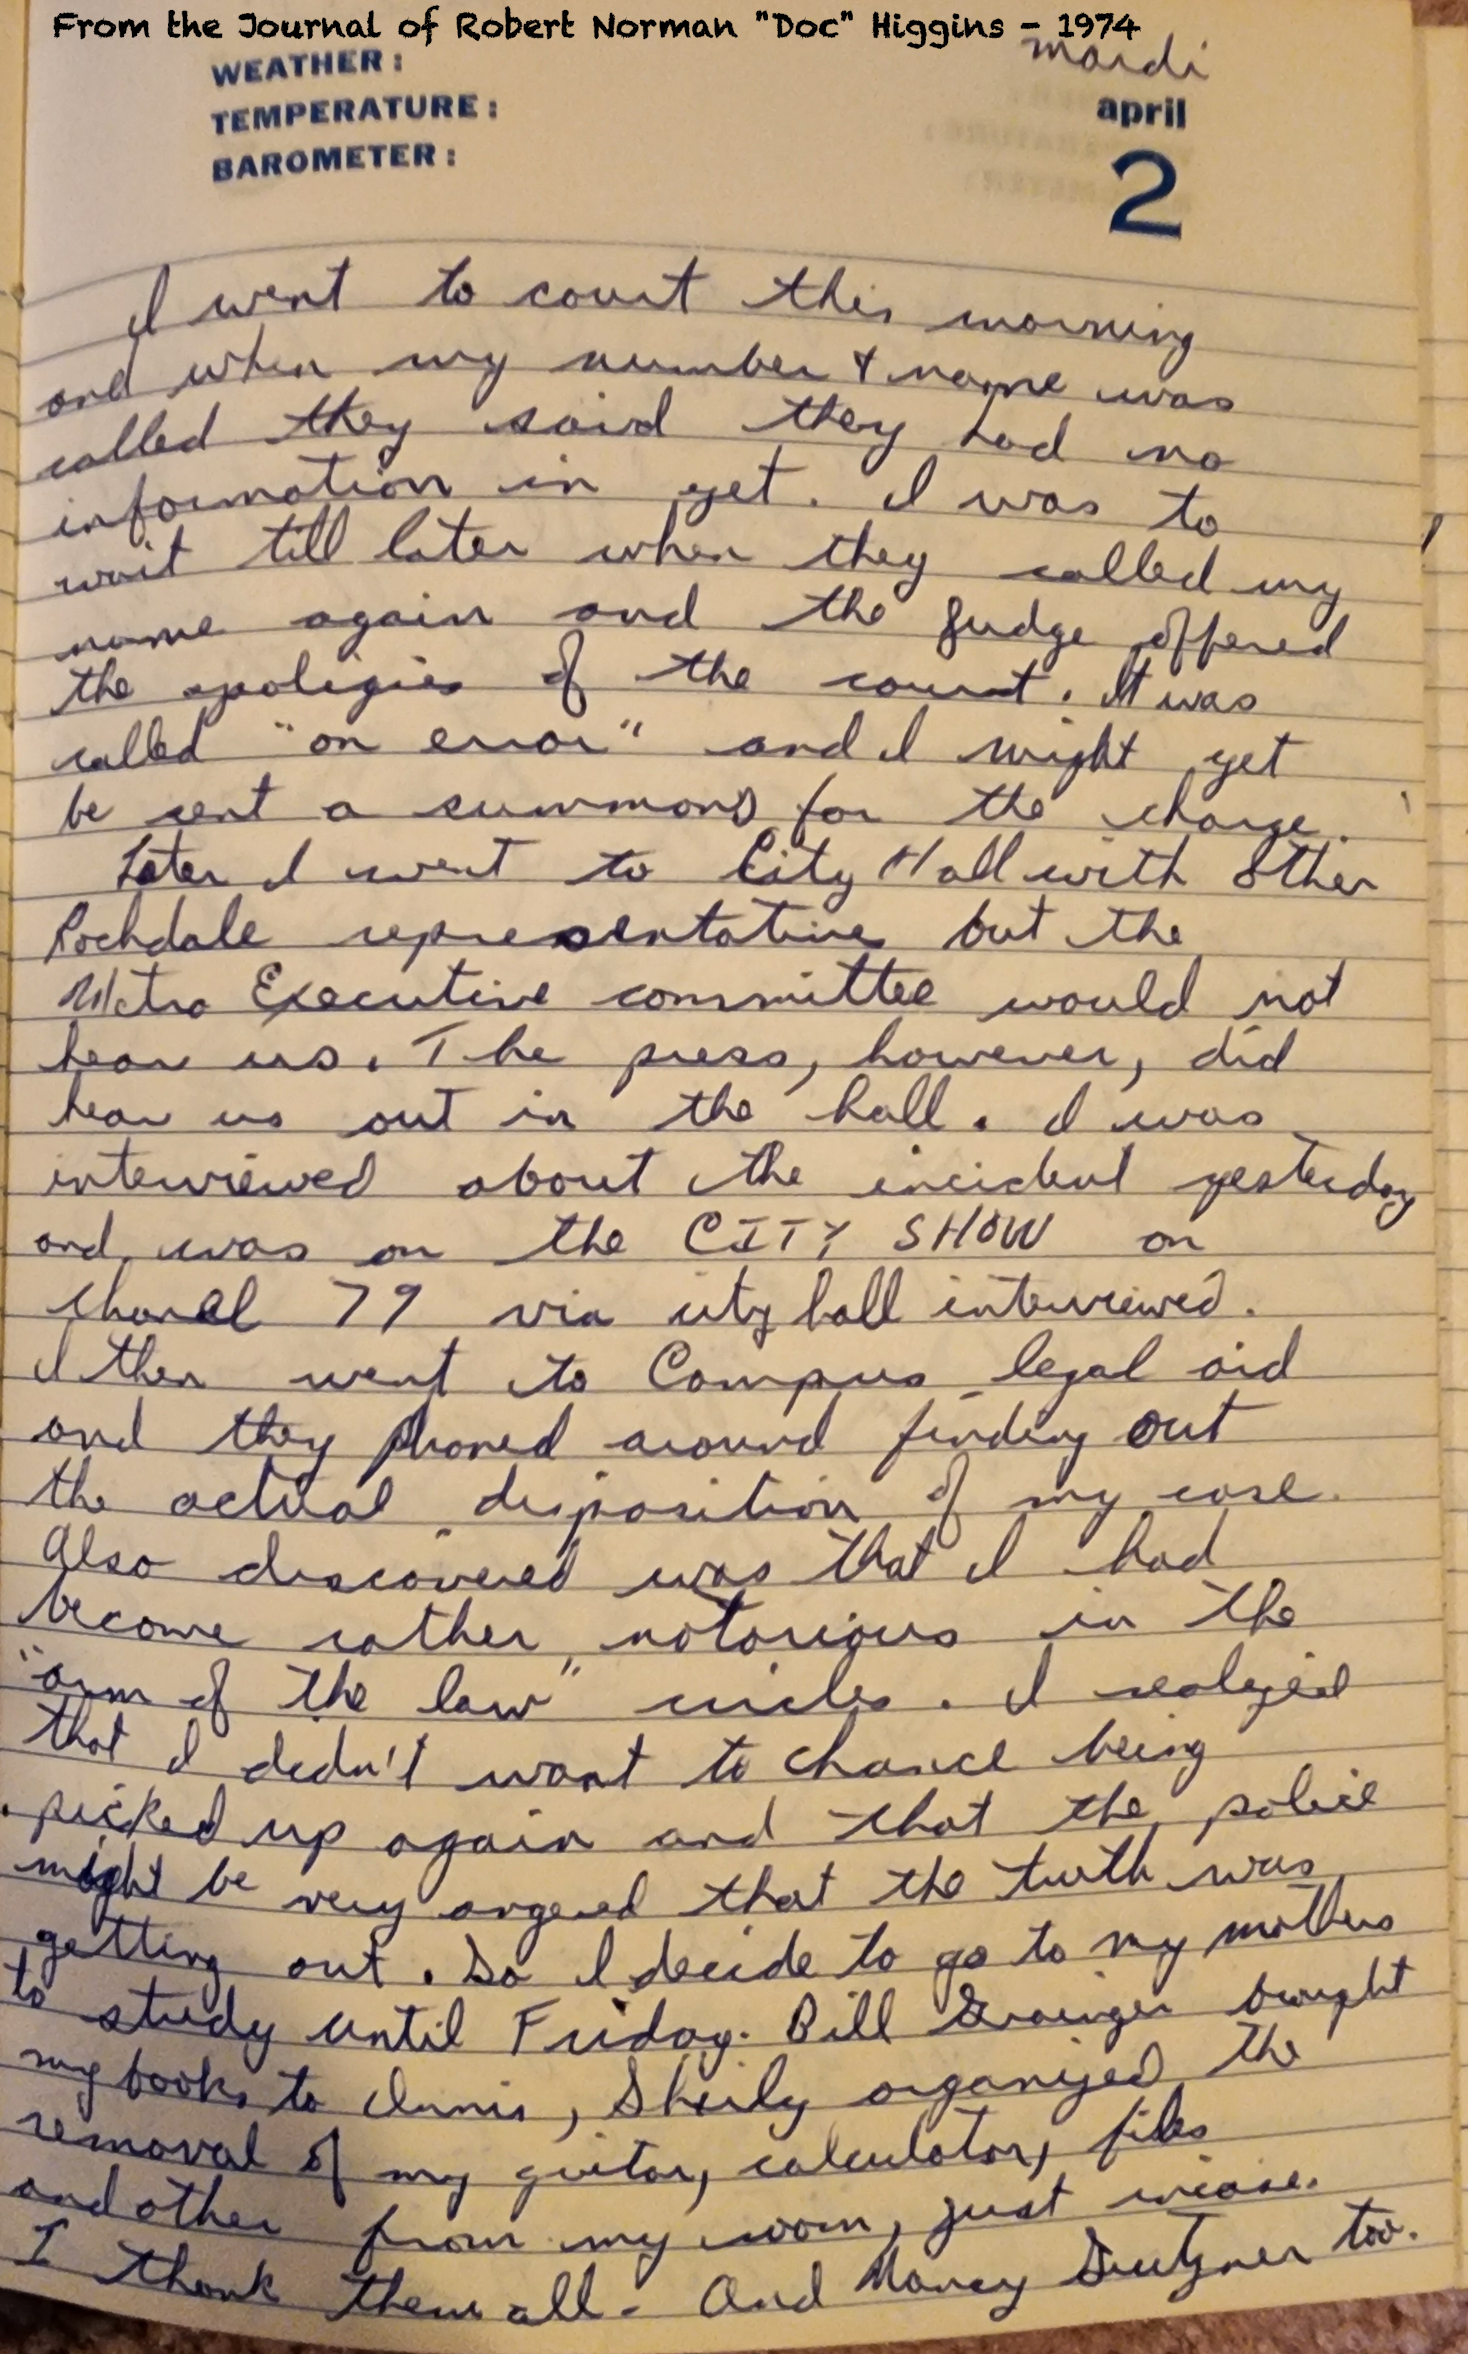 From the Journal of Robert Norman "Doc" Higgins - 1974
WEATHER:
TEMPERATURE:
BAROMETER:
mardi
april
2
I went to court this morning
and when my number & name was
called they said they had no
information in yet. I was to
wait till later when they called my
name again and the judge offered
the apoligies of the court. It was
called "an error" and I might yet
be sent a summons for the charge.
Later I went to City Hall with other
Rochdale representatives but the
Metro Executive committee would not
hear us. The press, however, did
hear us out in the hall. I was
interviewed about the incident yesterday
and was on the CITY SHOW on
chanel 79 via city hall interviewed.
I then went to Campus legal aid
and they phoned around finding out
the actual disposition of my case.
Also discovered was that I had
become rather notorious in the
"arm of the law" circles. I realized
that I didn't want to chance being
picked up again and that the police
might be very angered that the truth was
getting out. So I decide to go to my mothers
to study until Friday. Bill Grainger bought
my books to Innis, Sheily organized the
removal of my guitar, calculator, files
and other from my room, just incase.
I thank them all. And Nancy too.